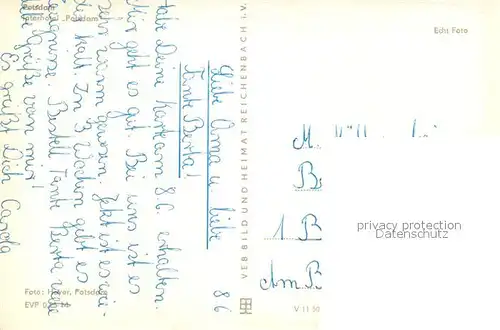 Potsdam
Interhotel „Potsdam"
Echt Foto
8.6.
Liebe Oma u. liebe
Tante Berta!
Habe Deine Karte am 8.6. erhalten.
Mir geht es gut. Bei uns ist es
sehr warm gewesen. Jetzt ist es
kalt. In 3 Wochen gibt es
Zeugnisse. Bestell Tante Berta
Grüße von mir!
Es grüßt Dich Carola
VEB BILD UND HEIMAT REICHENBACH I. V.
M.
B
1 B
Am B
privacy protection
Datenschutz
Foto: Höver, Potsdam
EVP
V 11 50